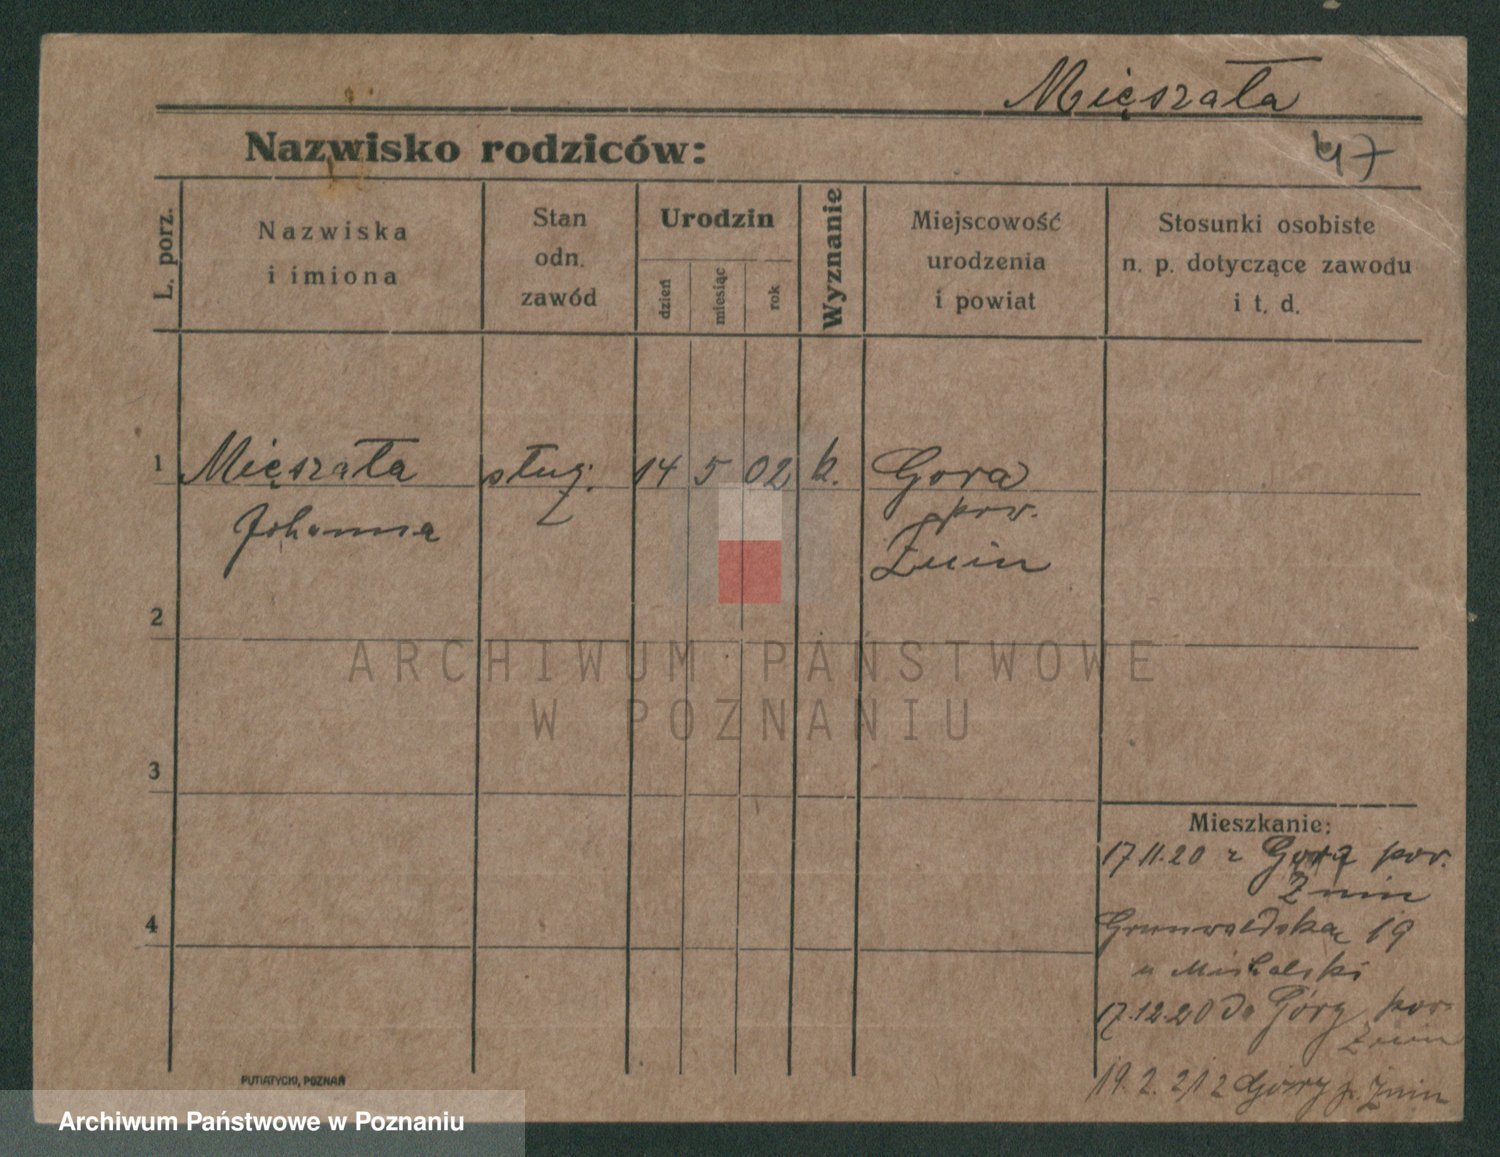 Mięszała
Nazwisko rodziców:
47
L. porz.
Nazwiska
i imiona
Stan
odn.
zawód
Urodzin
dzień
miesiąc
rok
Wyznanie
Miejscowość
urodzenia
i powiat
Stosunki osobiste
n. p. dotyczące zawodu
i t. d.
1 Mięszała służ. 14 5 02 k. Gora
Johanna
pow.
Żnin
2
ARCHIWUM PAŃSTWOWE
W POZNANIU
3
Mieszkanie:
17.11.20 z Gorą pow.
Żnin
4
Grunwaldska 19
u Michalski
17.12.20 do Góry pow.
Żnin
19.2.21 z Góry p. Żnin
PUTIATYCKI, POZNAŃ
Archiwum Państwowe w Poznaniu